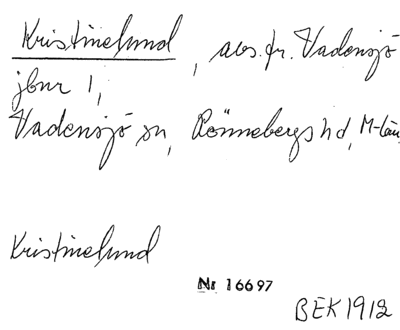 Kristinelund, avs. fr. Vadensjö
jbnr 1,
Vadensjö sn, Rönnebergs hd, M-län
Kristinelund
Nr 16697
BEK 1912